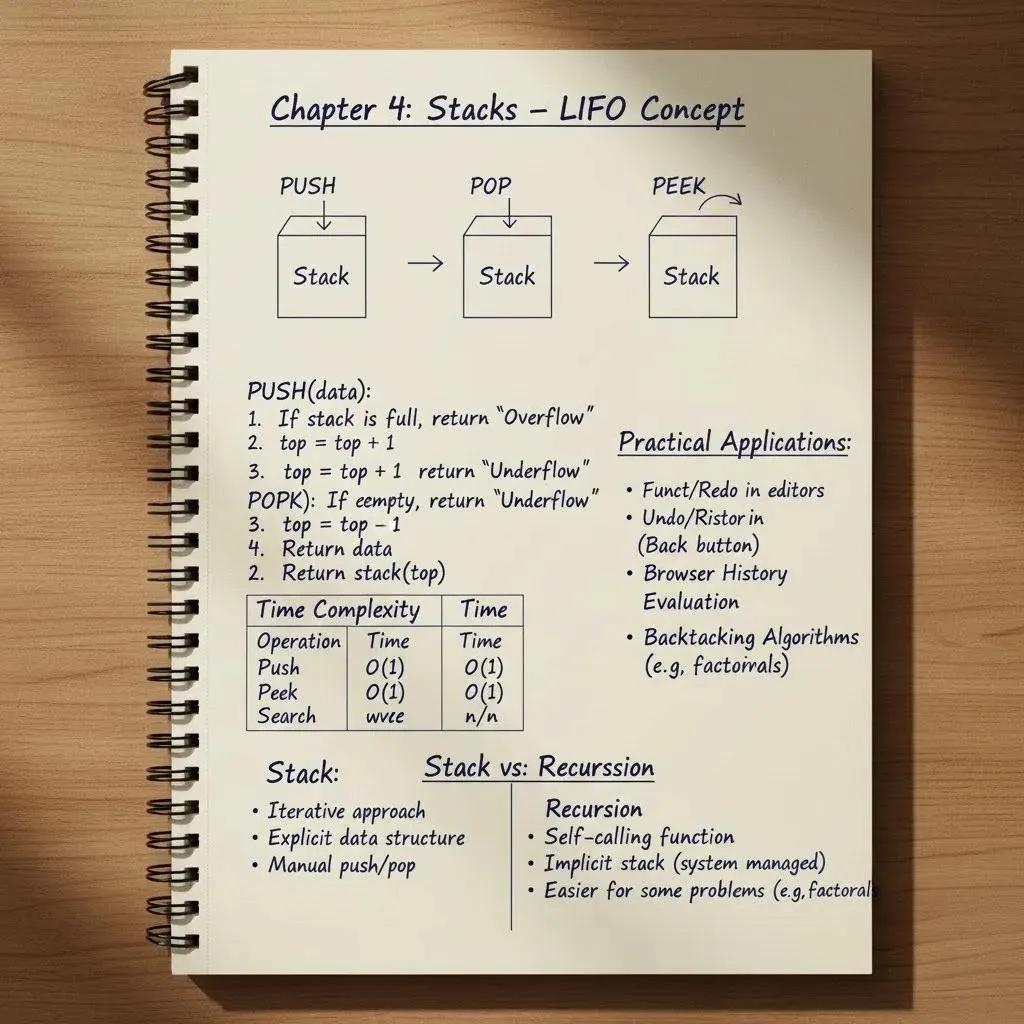 Chapter 4: Stacks – LIFO Concept
PUSH
POP
PEEK
Stack
Stack
Stack
PUSH(data):
1. If stack is full, return "Overflow"
2. top = top + 1
3. top = top + 1 return "Underflow"
POPK): If eempty, return "Underflow"
3. top = top – 1
4. Return data
2. Return stack(top)
Practical Applications:
• Funct/Redo in editors
• Undo/Ristor in
(Back button)
• Browser History
Evaluation
• Backtacking Algorithms
(e.g, factorivals)
Time Complexity Time
Operation Time Time
Push O(1) O(1)
Peek O(1) O(1)
Search wvce n/n
Stack vs: Recurssion
Stack:
• Iterative approach
• Explicit data structure
• Manual push/pop
Recursion
• Self-calling function
• Implicit stack (system managed)
• Easier for some problems (e.g,factorals